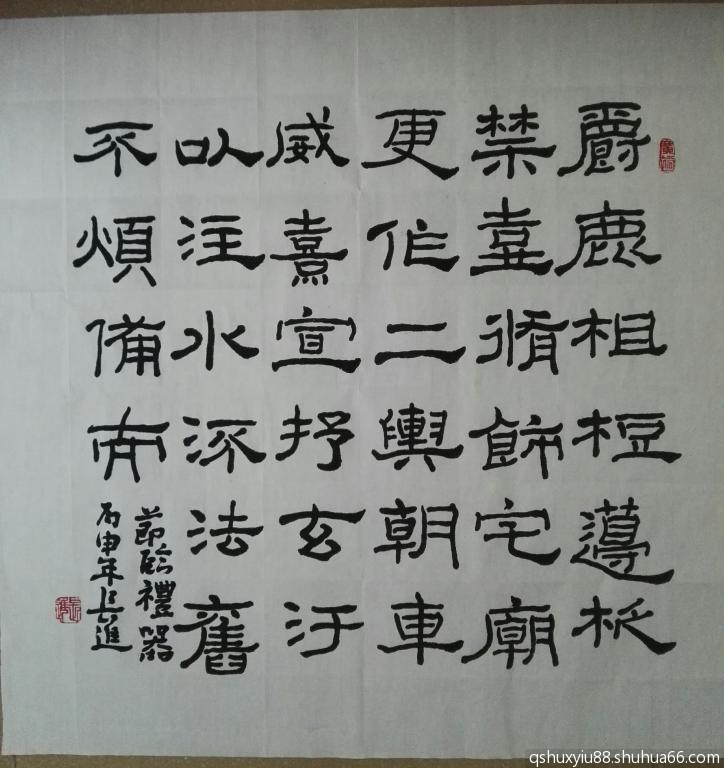 爵鹿柤梪籩柉
禁壺脩飾宅廟
更作二輿朝車
威熹宣抒玄汙
以注水流法舊
不煩備而
節臨禮器
丙申年長進
qshuxyiu88.shuhua66.com